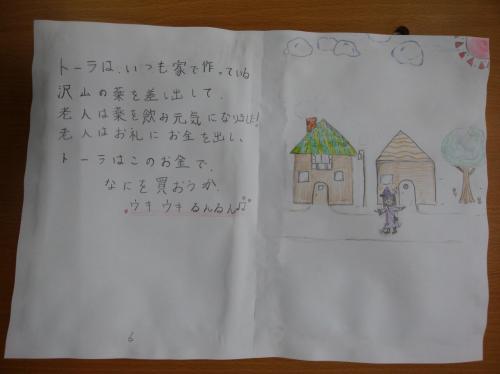 トーラは、いつも家で作っている
沢山の薬を差し出して、
老人は薬を飲み元気になりました!
老人はお礼にお金を出し、
トーラはこのお金で、
なにを買おうか、
ウキウキるんるん♫
6